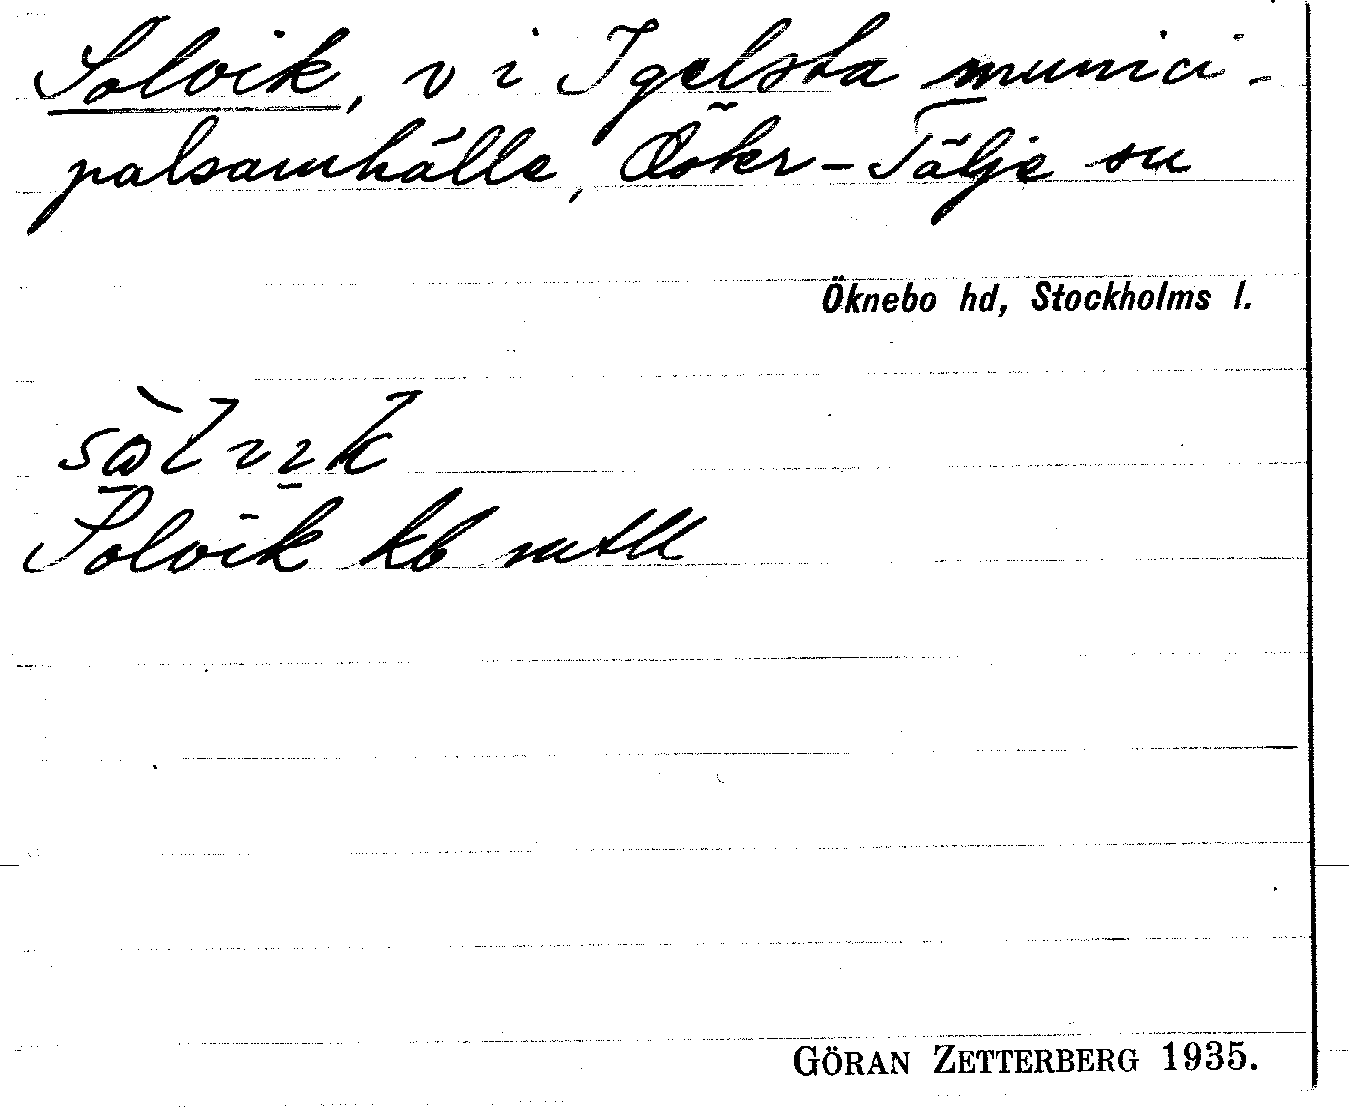 Solvik, v i Igelsta munici-
palsamhälle, Öster-Tälje sn
Öknebo hd, Stockholms l.
Solvik kb mtll
GÖRAN ZETTERBERG 1935.